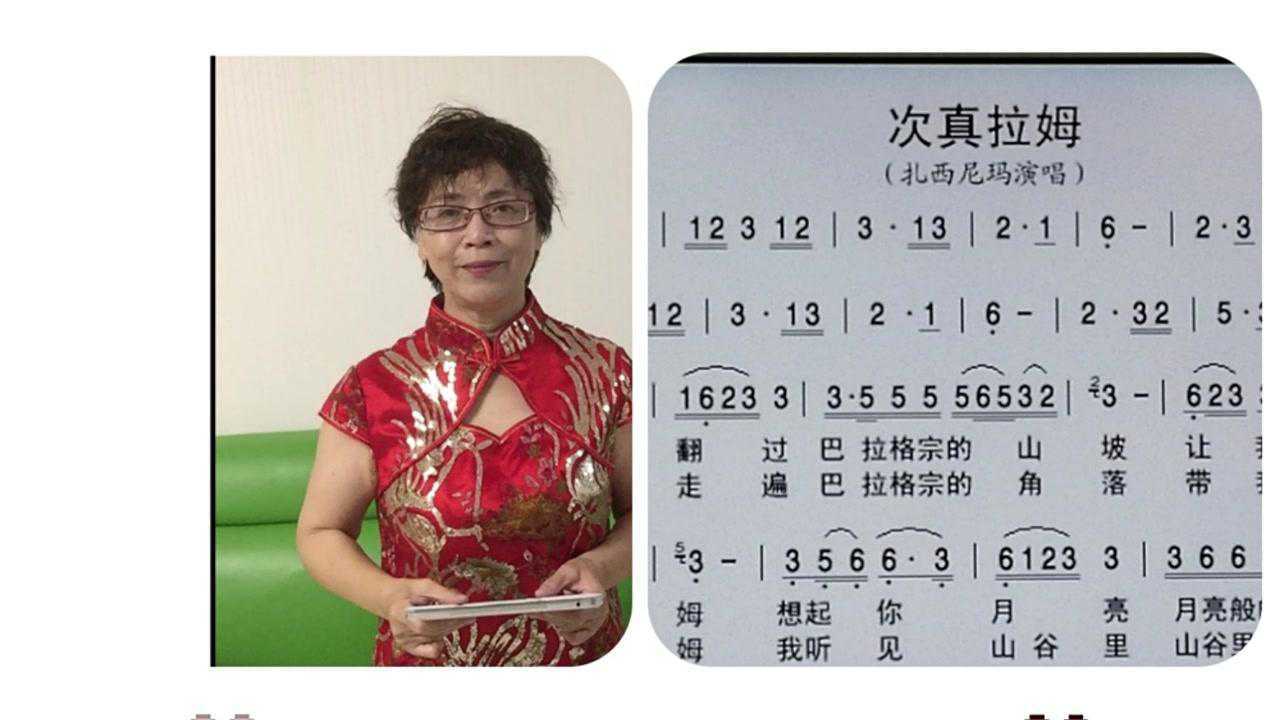 次真拉姆
(扎西尼玛演唱)
| 12 3 12 | 3 · 13 | 2 · 1 | 6 – | 2 · 3
12 | 3 · 13 | 2 · 1 | 6 – | 2 · 32 | 5 ·
| 1623 3 | 3·5 5 5 56532 | 23 – | 623
翻 过 巴 拉格宗的 山 坡 让
走 遍 巴 拉格宗的 角 落 带
| 53 – | 3 5 6 6 · 3 | 6123 3 | 3 6 6
姆 想起 你 月 亮 月亮般
姆 我听 见 山 谷 里 山谷里